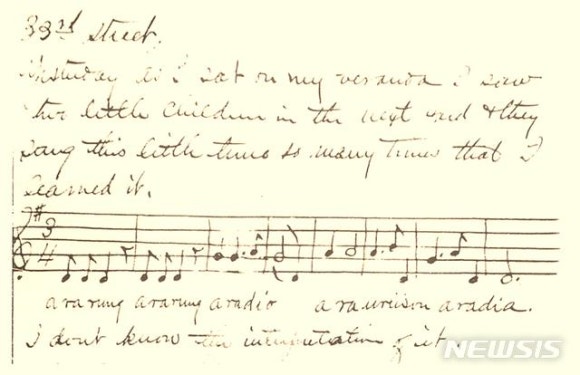 33rd street.
Yesterday as I sat on my veranda I saw
two little children in the next yard & they
sang this little tune so many times that I
learned it.
3
4
ararung ararung aradio ara aradia.
I dont know the interpretation of it.
NEWSIS